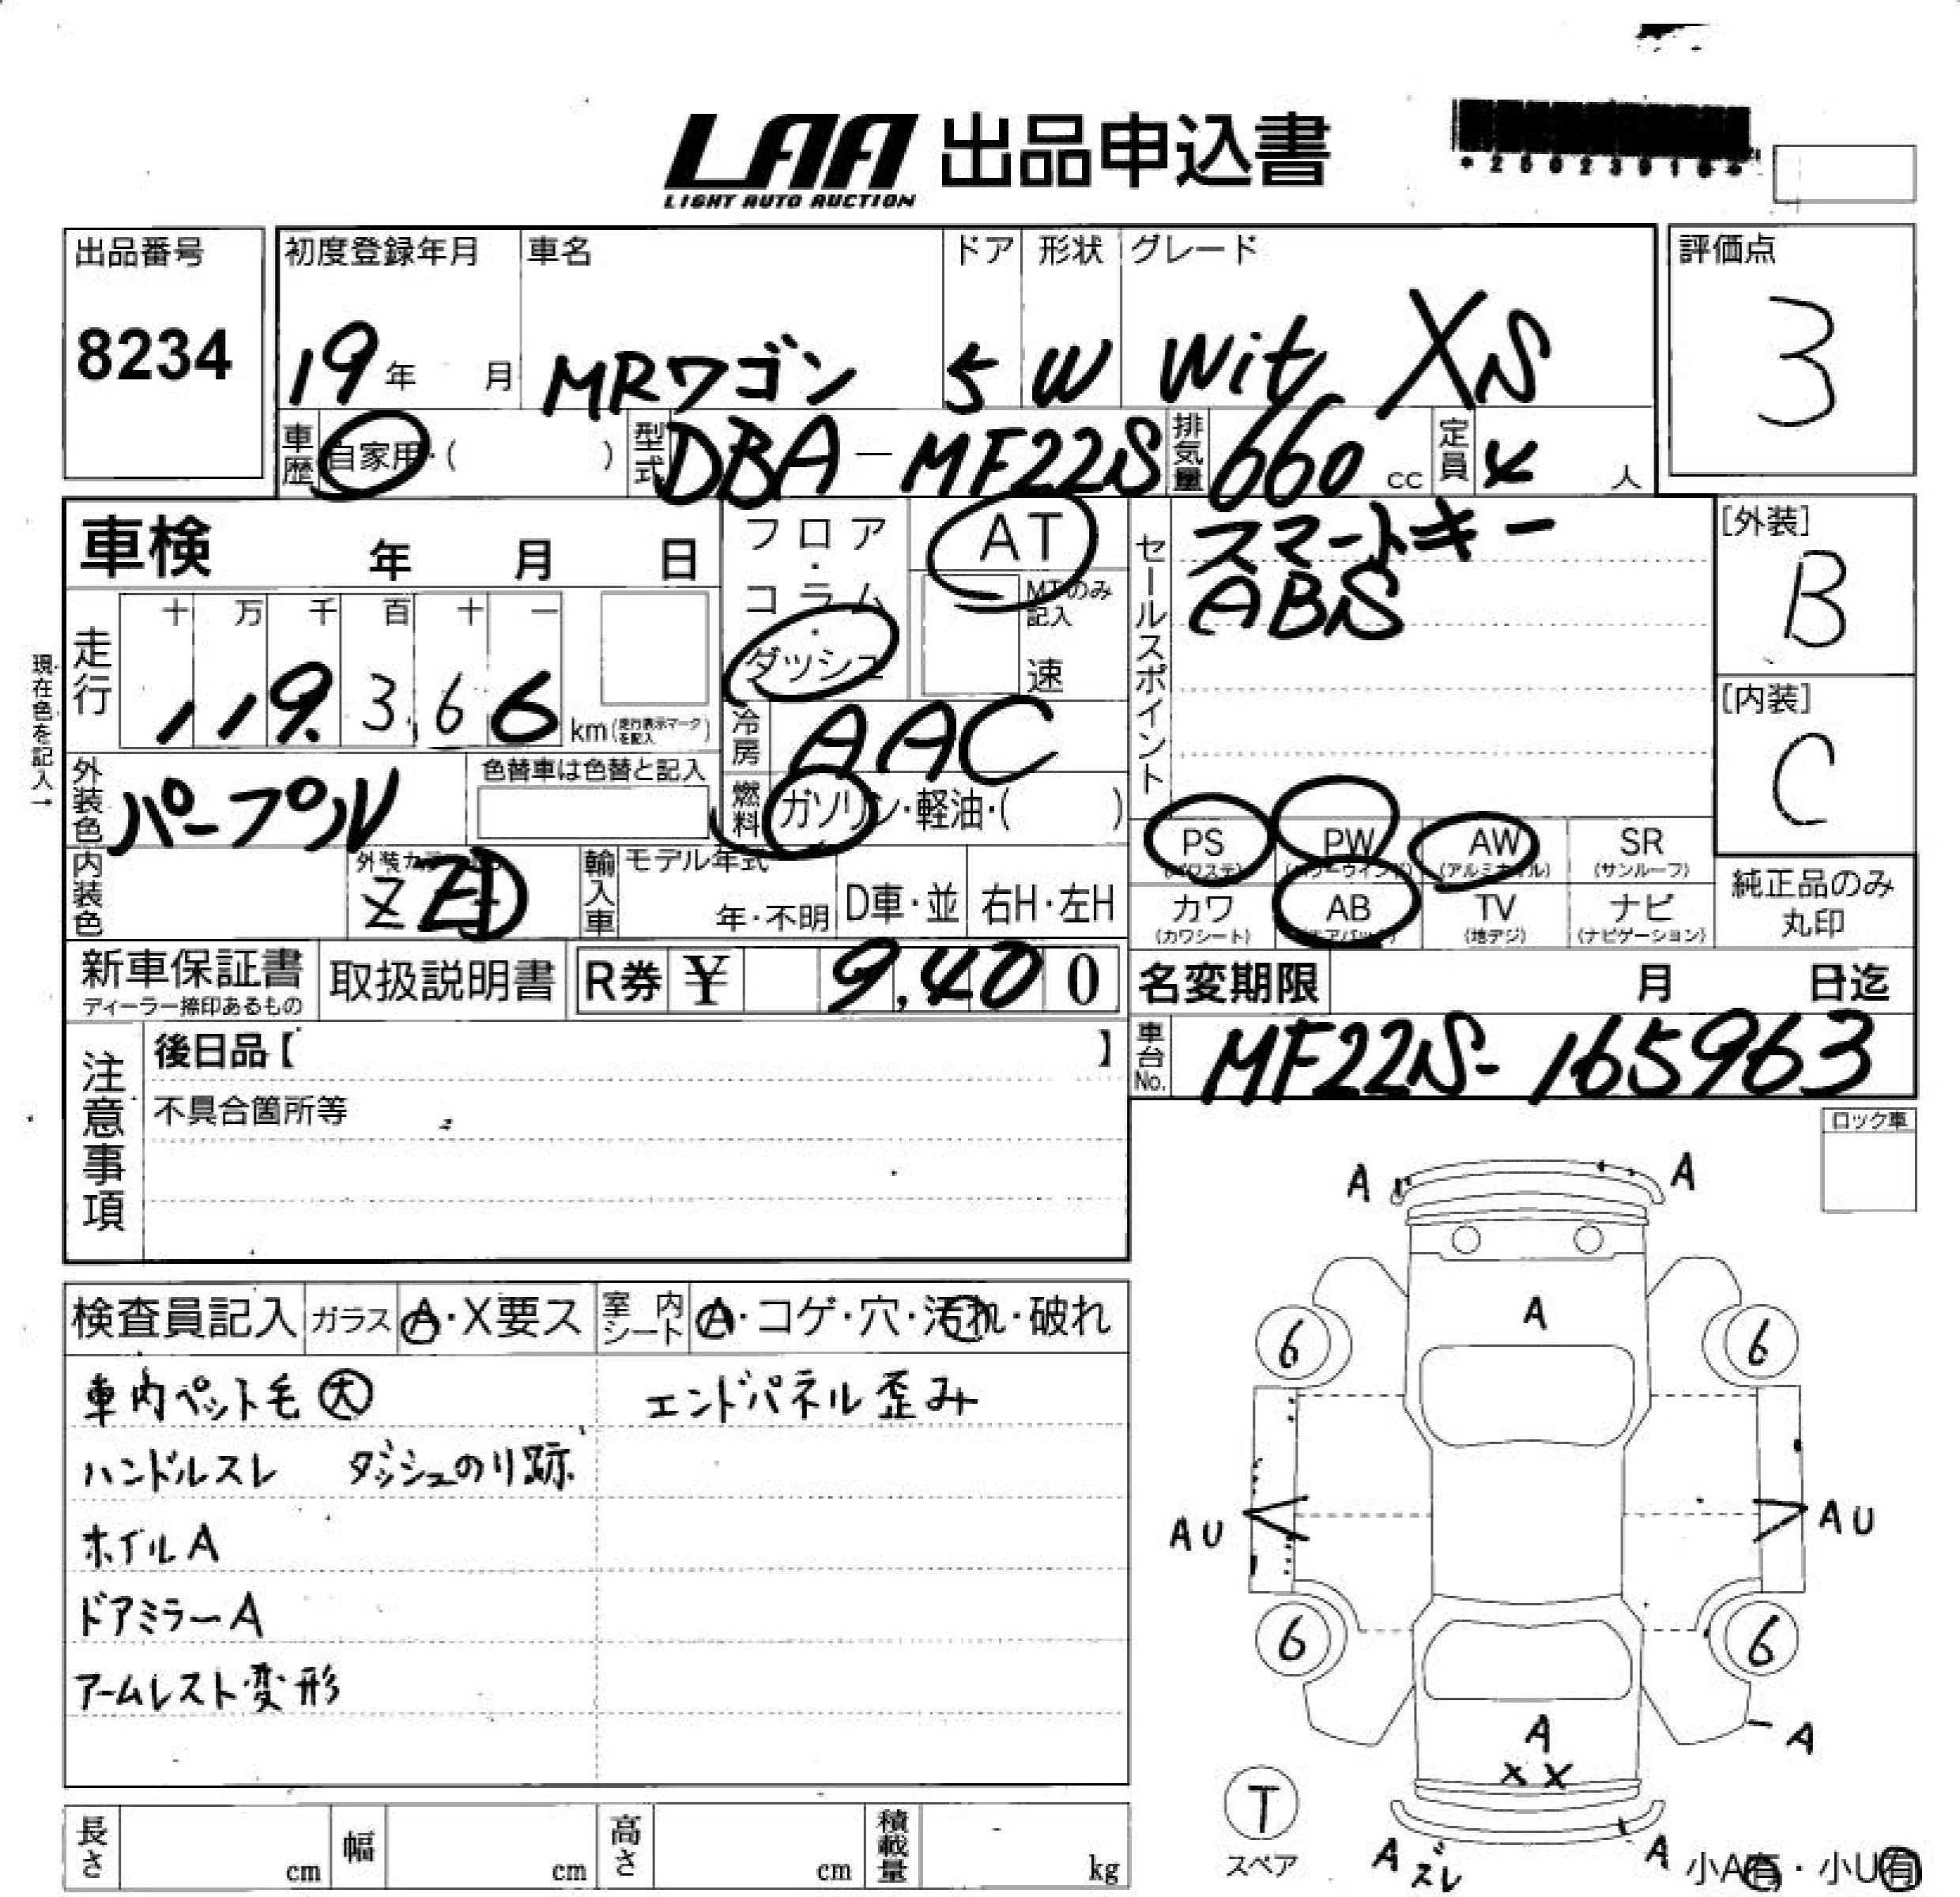 LAA 出品申込書
LIGHT AUTO AUCTION
*25023910*
出品番号 初度登録年月 車名 ドア 形状 グレード 評価点
8234 19年 月 MRワゴン 5 W Wit XS 3
車歴 自家用・( ) 型式 DBA-MF22S 排気量 660 cc 定員 4 人
車検 年 月 日 フロア・コラム・ダッシュ AT セールスポイント スマートキー [外装]
ABS B
MTのみ記入
速
現在色を記入→
走行 十 万 千 百 十 一
119.366 km (走行表示マークを記入)
冷房 AAC [内装]
C
外装色 パープル 色替車は色替と記入 燃料 ガソリン・軽油・( )
PS (パワステ) PW (パワーウインド) AW (アルミホイル) SR (サンルーフ)
内装色 外装カラー ZZJ 輸入車 モデル年式 年・不明 D車・並 右H・左H
カワ (カワシート) AB (エアバック) TV (地デジ) ナビ (ナビゲーション) 純正品のみ丸印
新車保証書 ディーラー捺印あるもの 取扱説明書 R券 ¥ 9,400 名変期限 月 日迄
注意事項 後日品【 】 車台No. MF22S-165963
不具合箇所等
ロック車
A A
検査員記入 ガラス A・X要ス 室内シート A・コゲ・穴・汚れ・破れ
A
6 6
車内ペット毛 大 エンドパネル歪み
ハンドルスレ ダッシュのり跡
ホイルA
AU AU
ドアミラーA
6 6
アームレスト変形
A
A
X X
T
スペア
A ズレ A 小A有・小U有
長さ cm 幅 cm 高さ cm 積載量 kg